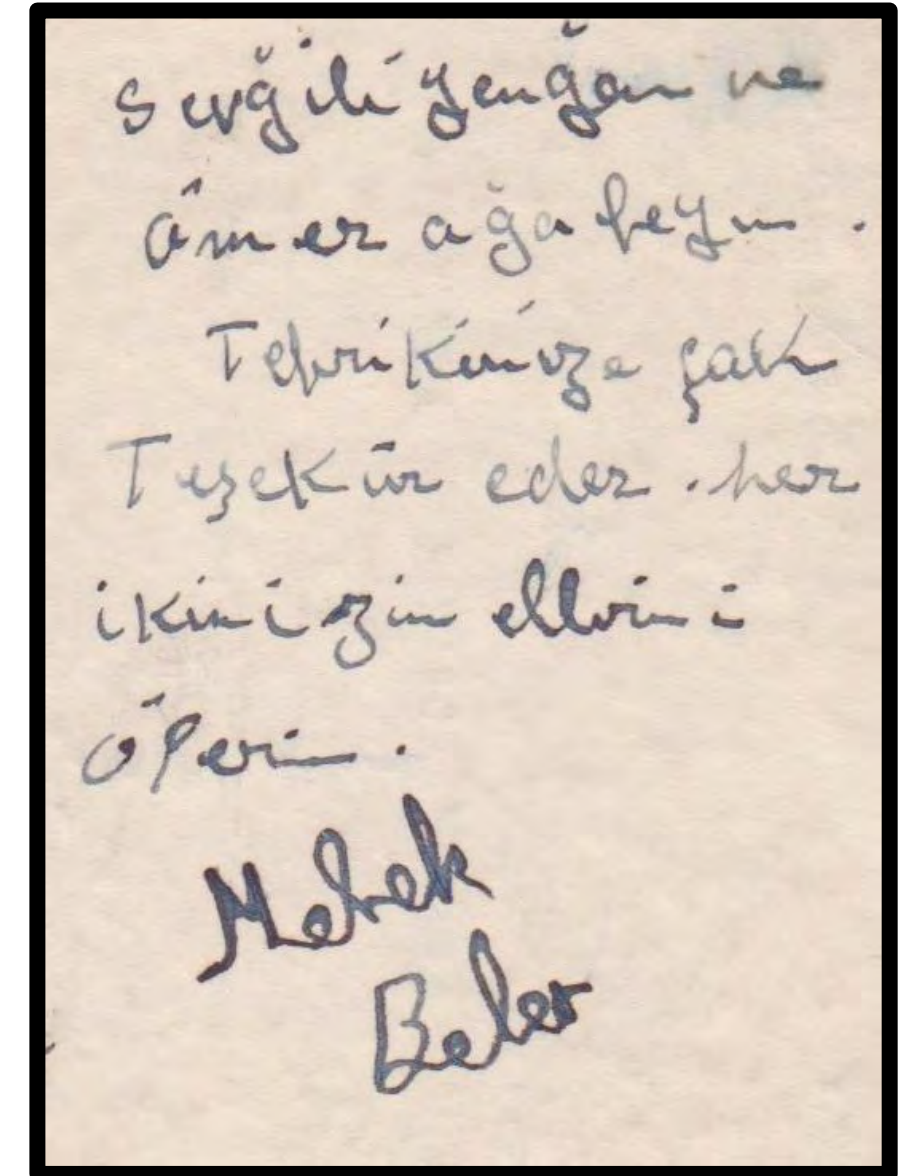 Sevğili yenğem ve
Ömer ağabeym.
Tebrikinize çok
Teşekür eder. her
ikinizin ellrini
öperim.
Melek
Beler